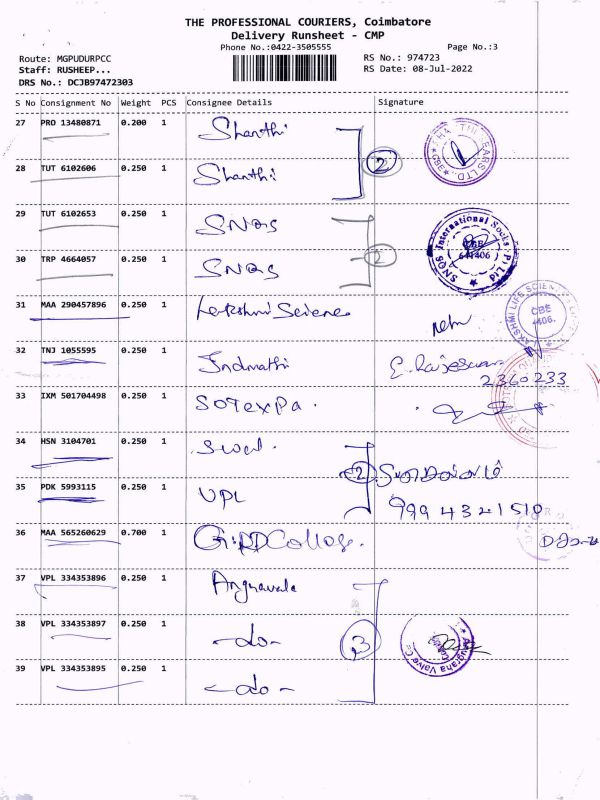 THE PROFESSIONAL COURIERS, Coimbatore
Delivery Runsheet - CMP
Phone No.:0422-3505555 Page No.:3
Route: MGPUDURPCC RS No.: 974723
Staff: RUSHEEP... RS Date: 08-Jul-2022
DRS No.: DCJB97472303
S No Consignment No Weight PCS Consignee Details Signature
27 PRO 13480871 0.200 1 Shanthi
28 TUT 6102606 0.250 1 Shanthi 2
29 TUT 6102653 0.250 1 SNQS
SNQS International Socks (P) Ltd CBE 641406
30 TRP 4664057 0.250 1 SNQS 2
31 MAA 290457896 0.250 1 Lakshmi Science
LAKSHMI LIFE SCIEN CBE
32 TNJ 1055595 0.250 1 Indmathi E. Rajeswari
2360233
33 IXM 501704498 0.250 1 SOTEXPA.
34 HSN 3104701 0.250 1
2
35 PDK 5993115 0.250 1 UPL 9994321510
36 MAA 565260629 0.700 1 GRD College.
37 VPL 334353896 0.250 1
38 VPL 334353897 0.250 1 -do- 3
Anugraha Valve C
39 VPL 334353895 0.250 1 -do-